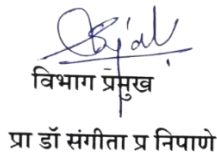 विभाग प्रमुख
प्रा डॉ संगीता प्र निपाणे